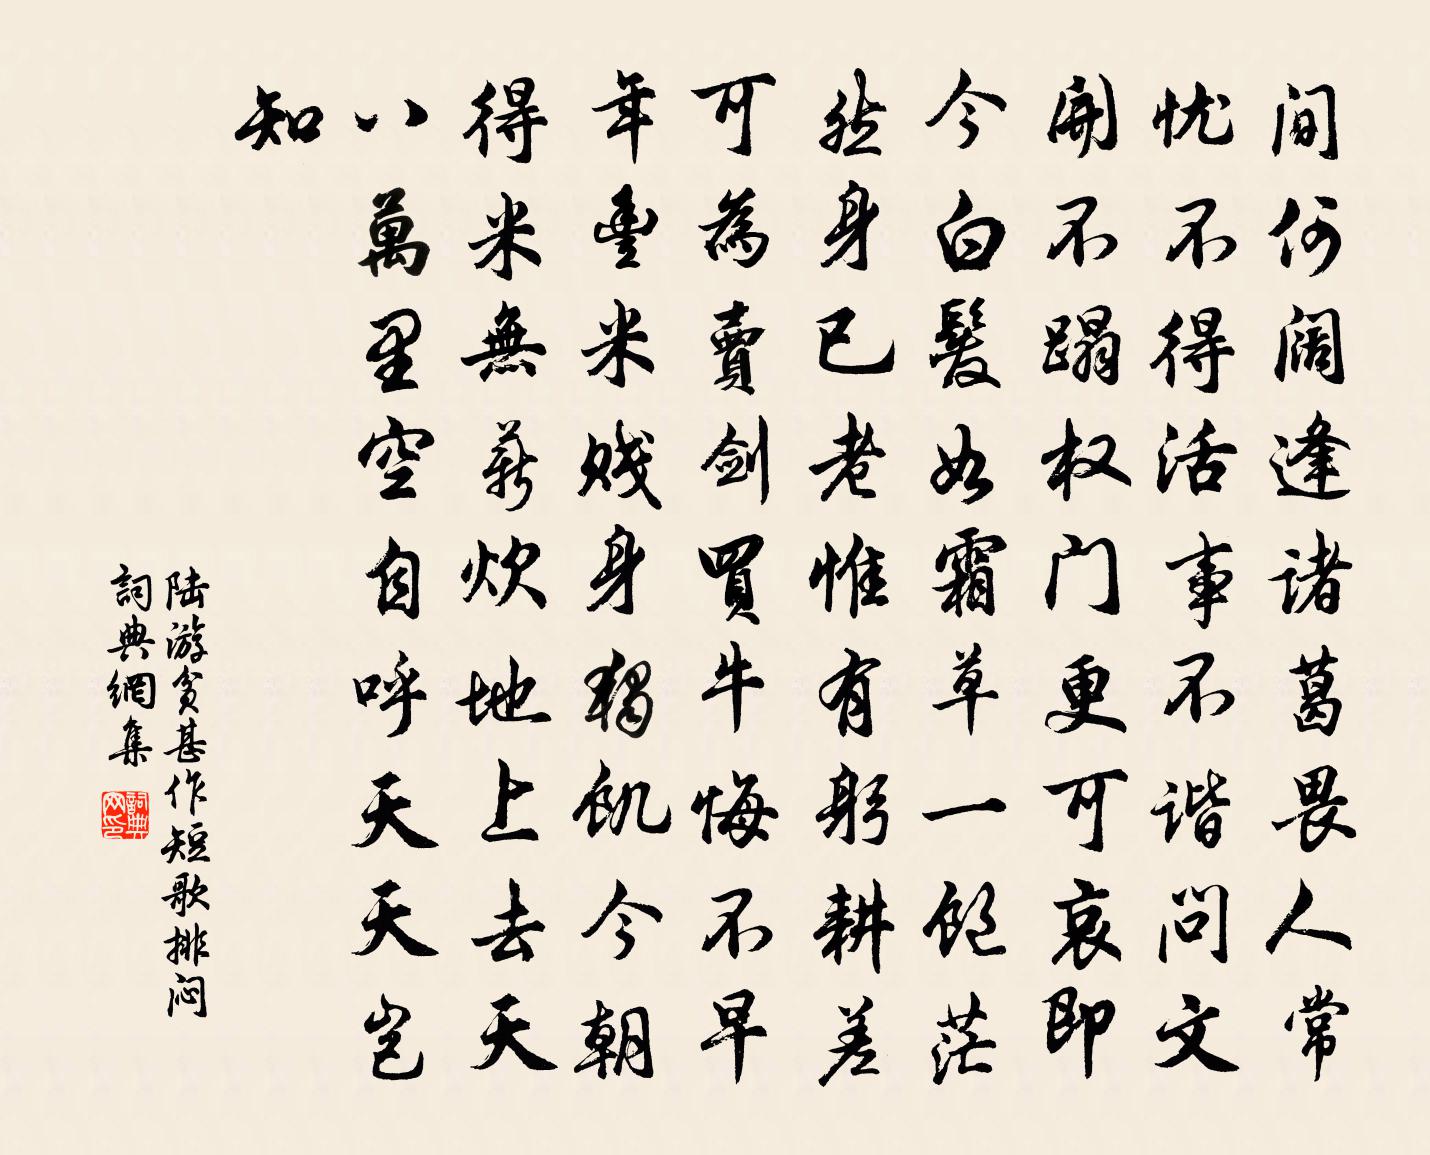 间何阔逢诸葛畏人常
忧不得活事不谐问文
開不蹋权门更可哀即
今白髮如霜草一饱茫
然身已老惟有躬耕差
可為賣劍買牛悔不早
年豐米贱身獨飢今朝
得米無薪炊地上去天
八萬里空自呼天天岂
知
陆游贫甚作短歌排闷
詞典網集
詞典网印